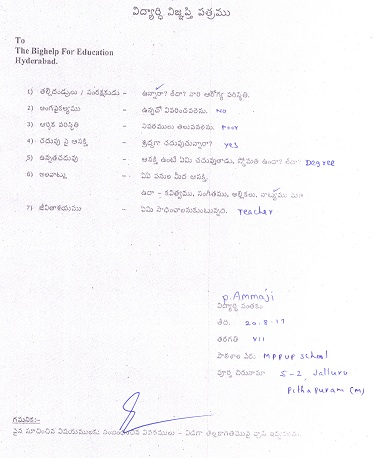 విద్యార్థి విజ్ఞప్తి పత్రము
To
The Bighelp For Education
Hyderabad.
1) తల్లిదండ్రులు / సంరక్షకుడు - ఉన్నారా? లేదా? వారి ఆరోగ్య పరిస్థితి.
2) అంగవైకల్యము - ఉన్నచో వివరించవలెను. NO
3) ఆర్థిక పరిస్థితి - వివరములు తెలుపవలెను. Poor
4) చదువు పై ఆసక్తి - శ్రద్ధగా చదువుచున్నారా? yes
5) ఉన్నతచదువు - ఆసక్తి ఉంటే ఏమి చదువుతాడు, స్తోమత ఉందా? లేదా? Degree
6) అలవాట్లు - ఏఏ పనుల మీద ఆసక్తి.
ఉదా - కవిత్వము, సంగీతము, అల్లికలు, నాట్యము
7) జీవితాశయము - ఏమి సాధించాలనుకుంటున్నది. Teacher
P. Ammaji
విద్యార్థి సంతకం
తేది. 20.8-17
తరగతి VII
పాఠశాల పేరు MPPUP School
పూర్తి చిరునామా 5-2, Jalluru
Pithapuram (M)
గమనిక:-
పైన సూచించిన విషయములకు సంబంధించిన వివరములు - విడిగా తెల్లకాగితముపై వ్రాసి